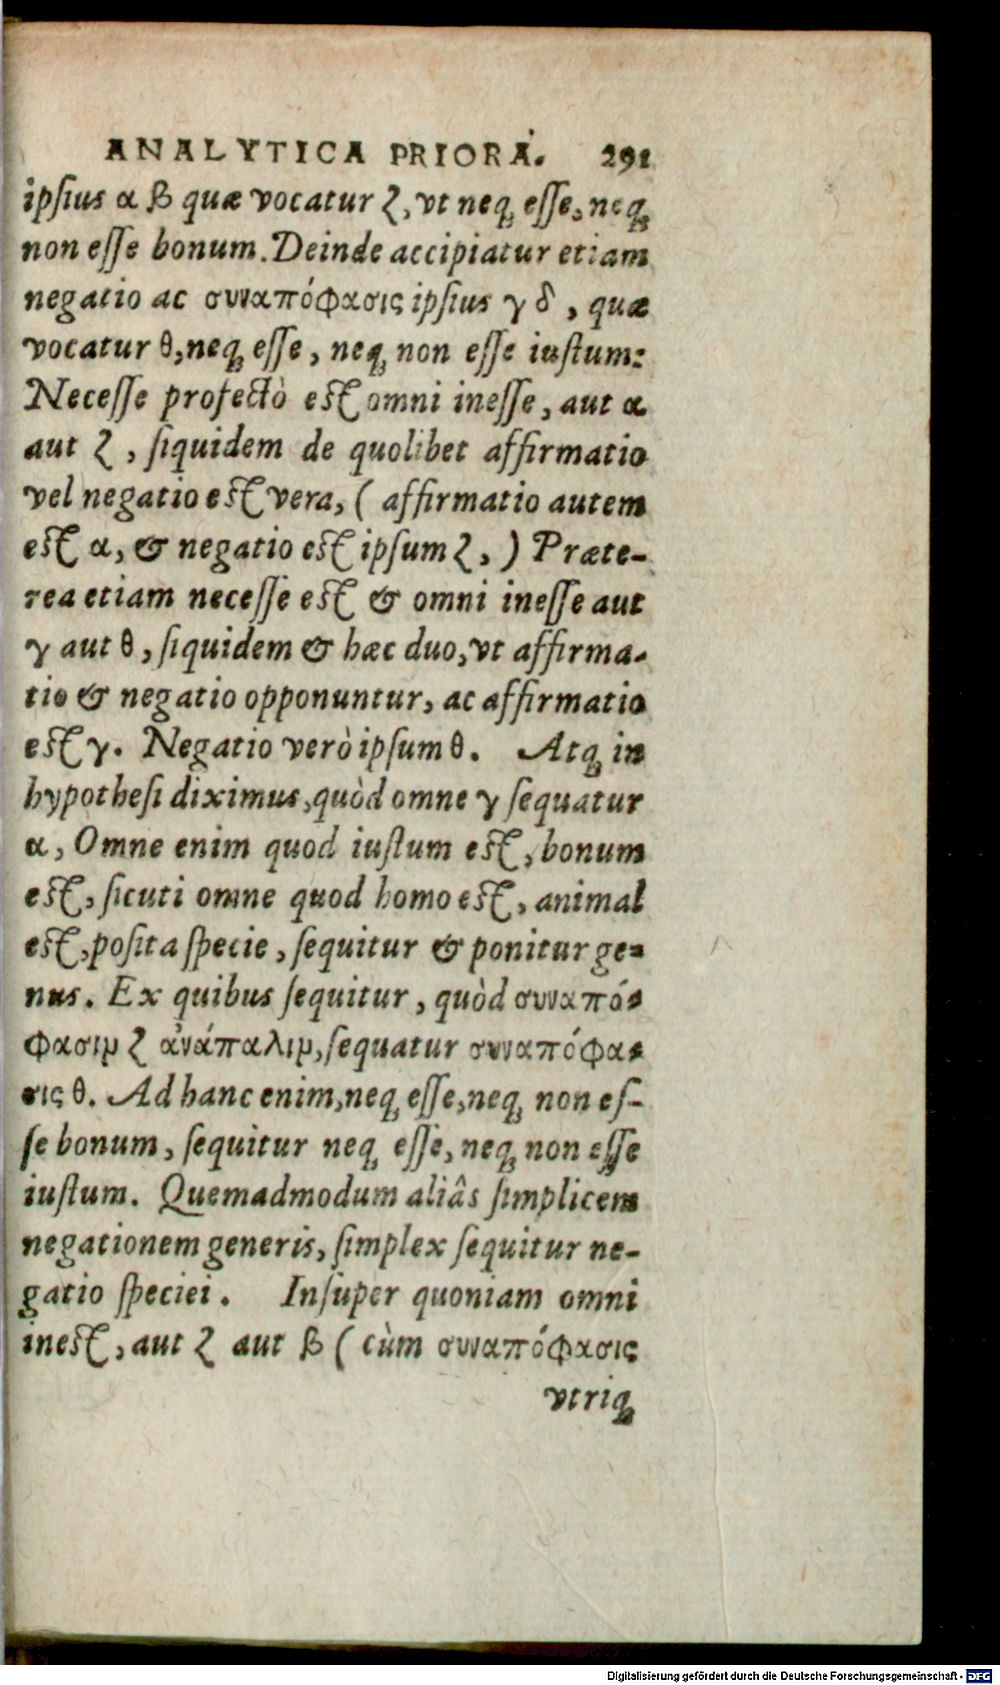 ANALYTICA PRIORA. 291
ipsius α β quæ vocatur ζ, vt neq; esse, neq;
non esse bonum. Deinde accipiatur etiam
negatio ac συναπόφασις ipsius γ δ, quæ
vocatur θ, neq; esse, neq; non esse iustum:
Necesse profectò est omni inesse, aut α
aut ζ, siquidem de quolibet affirmatio
vel negatio est vera, ( affirmatio autem
est α, & negatio est ipsum ζ, ) Præte-
rea etiam necesse est & omni inesse aut
γ aut θ, siquidem & hæc duo, vt affirma-
tio & negatio opponuntur, ac affirmatio
est γ. Negatio verò ipsum θ. Atq; in
hypothesi diximus, quòd omne γ sequatur
α, Omne enim quod iustum est, bonum
est, sicuti omne quod homo est, animal
est, posita specie, sequitur & ponitur ge-
nus. Ex quibus sequitur, quòd συναπό-
φασιμ ζ ἀνάπαλιμ, sequatur συναπόφα-
σις θ. Ad hanc enim, neq; esse, neq; non es-
se bonum, sequitur neq; esse, neq; non esse
iustum. Quemadmodum aliâs simplicem
negationem generis, simplex sequitur ne-
gatio speciei. Insuper quoniam omni
inest, aut ζ aut β ( cùm συναπόφασις
vtriq;
Digitalisierung gefördert durch die Deutsche Forschungsgemeinschaft - DFG